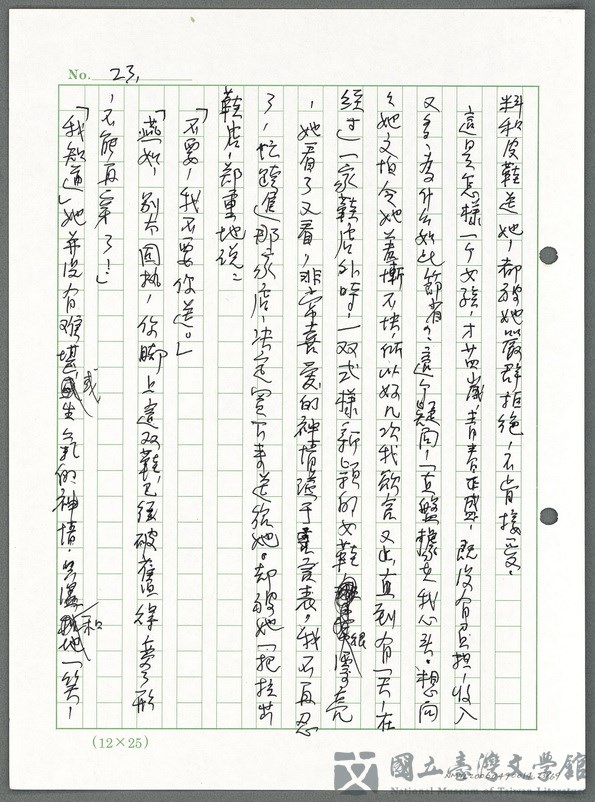 No. 23.
料和皮鞋送她,都被她嚴辭拒絕,不肯接受。
這是怎樣一个女孩,才廿四歲,青春正盛,既沒有負担,收入
又多,為什么如此節省?這个疑問,一直盤據在我心头。想問
她又怕令她羞慚不快,所以好几次我欲言又止,直到有一天,在
經过一家鞋店外時,一双式樣新穎的女鞋很漂亮
,她看了又看,非常喜愛的神情溢于言表,我不再忍
了,忙踏進那家店,决定買下來送给她。却被她一把拉出
鞋店,鄭重地説:
「不要,我不要你送。」
「燕如,別太固执,你脚上這双鞋,已經破舊得变了形
,不能再穿了!」
「我知道」她并沒有难堪或生氣的神情,只溫和地一笑,
(12×25)
國立臺灣文學館
National Museum of Taiwan Literature